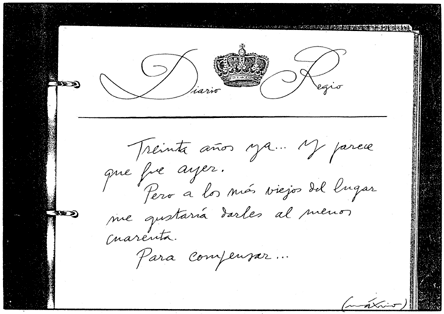 Diario Regio
Treinta años ya... Y parece
que fue ayer.
Pero a los más viejos del lugar
me gustaría darles al menos
cuarenta.
Para compensar...
(máximo)